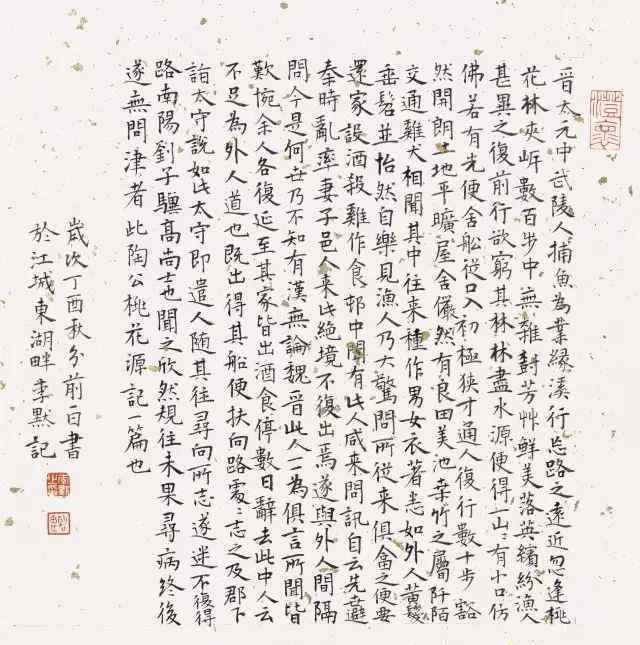 澄懷
晉太元中武陵人捕魚為業緣溪行忘路之遠近忽逢桃
花林夾岸數百步中無雜樹芳艸鮮美落英繽紛漁人
甚異之復前行欲窮其林林盡水源便得一山〻有小口仿
佛若有光便舍船從口入初極狹才通人復行數十步豁
然開朗土地平曠屋舍儼然有良田美池桑竹之屬阡陌
交通雞犬相聞其中往來種作男女衣著悉如外人黃髮
垂髫並怡然自樂見漁人乃大驚問所從來俱畣之便要
還家設酒殺雞作食邨中聞有此人咸來問訊自云先世避
秦時亂率妻子邑人來此絕境不復出焉遂與外人間隔
問今是何世乃不知有漢無論魏晉此人一一為俱言所聞皆
歎惋余人各復延至其家皆出酒食停數日辭去此中人云
不足為外人道也既出得其船便扶向路處〻志之及郡下
詣太守說如此太守即遣人隨其往尋向所志遂迷不復得
路南陽劉子驥高尚士也聞之欣然規往未果尋病終後
遂無問津者此陶公桃花源記一篇也
歲次丁酉秋分前一日書
於江城東湖畔李默記